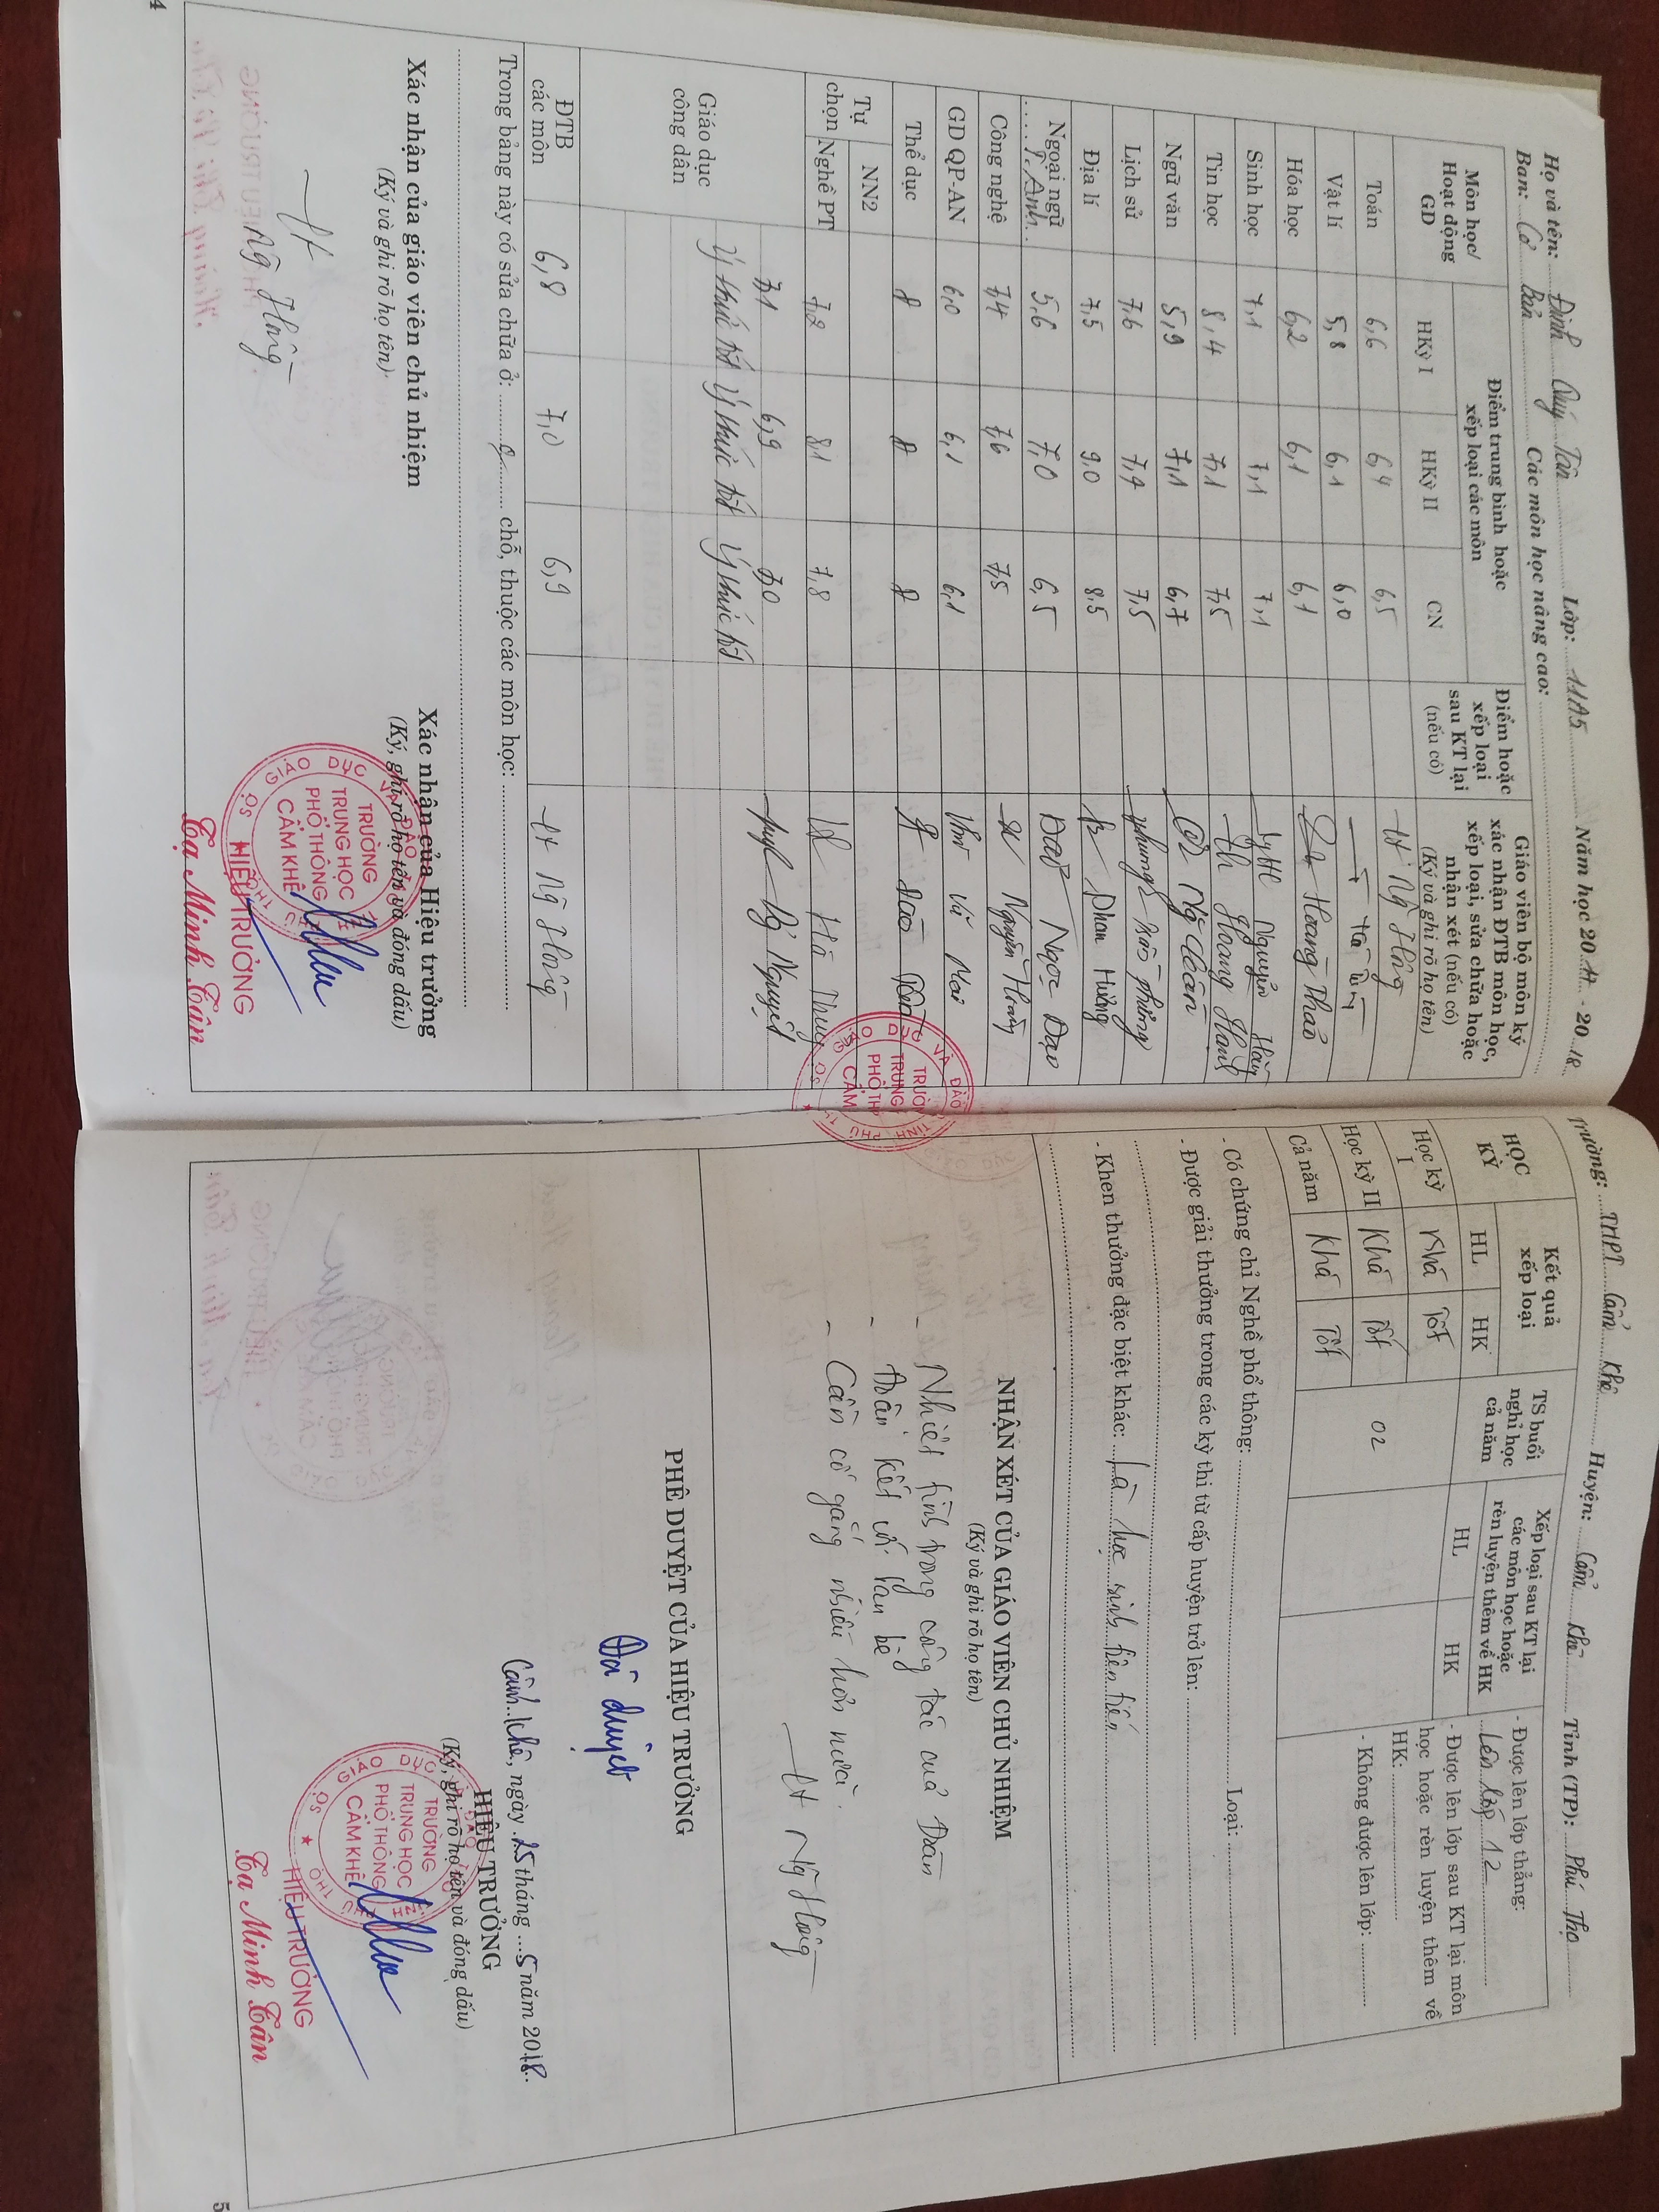 Họ và tên: Đinh Quý Tân Lớp: 11A5 Năm học 2017 - 2018
Ban: Cơ Bản Các môn học nâng cao:
Môn học/ Hoạt động GD
Điểm trung bình hoặc xếp loại các môn
Điểm hoặc xếp loại sau KT lại (nếu có)
Giáo viên bộ môn ký xác nhận ĐTB môn học, xếp loại, sửa chữa hoặc nhận xét (nếu có)
(Ký và ghi rõ họ tên)
HKỳ I HKỳ II CN
Toán 6,6 6,4 6,5 Ng Hồng
Vật lí 5,8 6,1 6,0
Hóa học 6,2 6,1 6,1 Hoàng Thảo
Sinh học 7,1 7,1 7,1 Nguyễn
Tin học 8,4 7,1 7,5 Hoàng Hạnh
Ngữ văn 5,9 7,1 6,7
Lịch sử 7,6 7,4 7,5
Địa lí 7,5 9,0 8,5 Phan Hường
Ngoại ngữ T. Anh 5,6 7,0 6,5 Ngọc Đạo
Công nghệ 7,4 7,6 7,5 Nguyễn
GD QP-AN 6,0 6,1 6,1 Vũ Mai
Thể dục Đ Đ Đ Đào
Tự chọn NN2
Nghề PT 7,2 8,1 7,8 Hà Thuý
Giáo dục công dân 7,1 6,9 7,0 Nguyệt
Ý thức tốt Ý thức tốt Ý thức tốt
ĐTB các môn 6,8 7,0 6,9 Ng Hồng
Trong bảng này có sửa chữa ở: chỗ, thuộc các môn học:
Xác nhận của giáo viên chủ nhiệm
(Ký và ghi rõ họ tên)
Ng Hồng
Xác nhận của Hiệu trưởng
(Ký, ghi rõ họ tên và đóng dấu)
SỞ GIÁO DỤC VÀ ĐÀO TẠO TỈNH PHÚ THỌ
TRƯỜNG
TRUNG HỌC
PHỔ THÔNG
CẨM KHÊ
HIỆU TRƯỞNG
Tạ Minh Tân
4
SỞ GIÁO DỤC VÀ ĐÀO TỈNH PHÚ TH
TRƯỜ
TRUNG
PHỔ TH
CẨM
Trường: THPT Cẩm Khê Huyện: Cẩm Khê Tỉnh (TP): Phú Thọ
HỌC KỲ
Kết quả xếp loại
TS buổi nghỉ học cả năm
Xếp loại sau KT lại các môn học hoặc rèn luyện thêm về HK
HL HK HL HK
Học kỳ I Khá Tốt
Học kỳ II Khá Tốt 02
Cả năm Khá Tốt
- Được lên lớp thẳng:
Lên lớp 12
- Được lên lớp sau KT lại môn
học hoặc rèn luyện thêm về
HK:
- Không được lên lớp:
- Có chứng chỉ Nghề phổ thông: Loại:
- Được giải thưởng trong các kỳ thi từ cấp huyện trở lên:
- Khen thưởng đặc biệt khác: Là học sinh tiên tiến
NHẬN XÉT CỦA GIÁO VIÊN CHỦ NHIỆM
(Ký và ghi rõ họ tên)
- Nhiệt tình trong công tác của Đoàn
- Đoàn kết với bạn bè
- Cần cố gắng nhiều hơn nữa.
Ng Hồng
PHÊ DUYỆT CỦA HIỆU TRƯỞNG
Đã duyệt
Cẩm Khê, ngày 25 tháng 5 năm 2018
HIỆU TRƯỞNG
(Ký, ghi rõ họ tên và đóng dấu)
SỞ GIÁO DỤC VÀ ĐÀO TẠO TỈNH PHÚ THỌ
TRƯỜNG
TRUNG HỌC
PHỔ THÔNG
CẨM KHÊ
HIỆU TRƯỞNG
Tạ Minh Tân
5